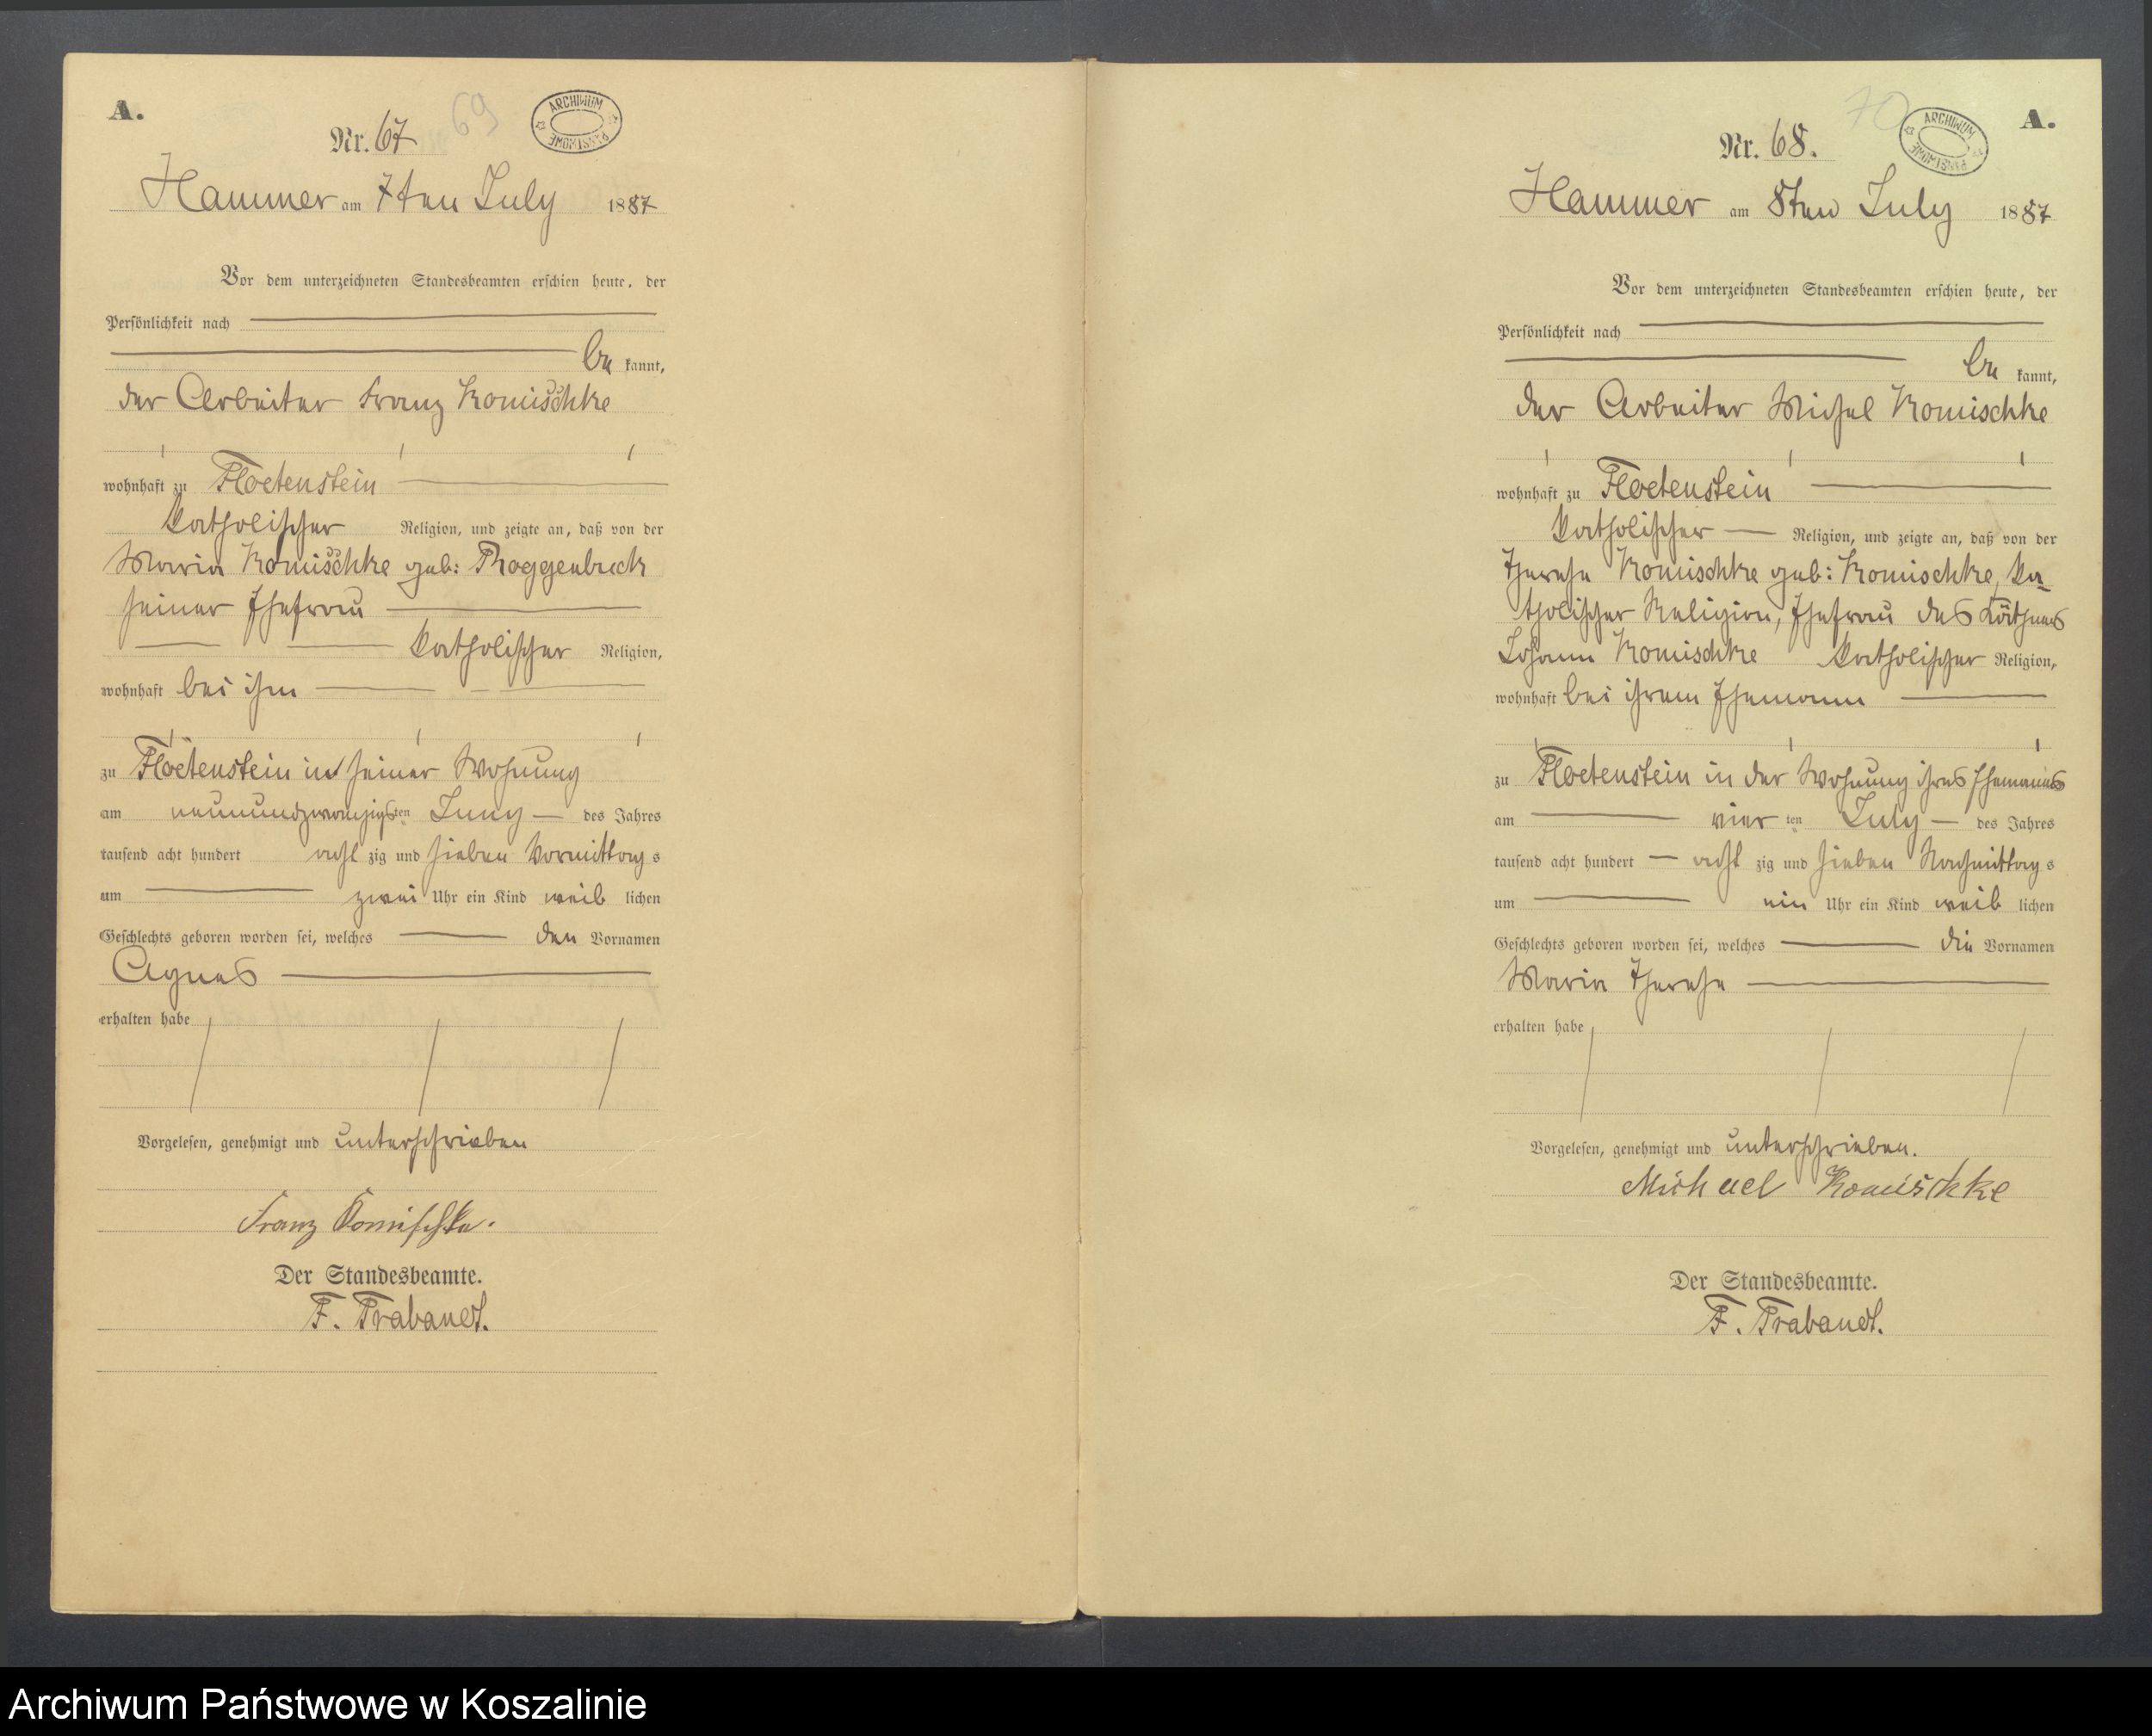 A.
69
Nr. 67
ARCHIWUM PAŃSTWOWE
Hammer am 7ten July 1887
Vor dem unterzeichneten Standesbeamten erschien heute, der
Persönlichkeit nach
be kannt,
der Arbeiter Franz Komischke
wohnhaft zu Floetenstein
katholischer Religion, und zeigte an, daß von der
Maria Komischke geb: Roggenbuck
seiner Ehefrau
katholischer Religion,
wohnhaft bei ihm
zu Floetenstein in seiner Wohnung
am neunundzwanzigsten Juny des Jahres
tausend acht hundert acht zig und sieben Vormittags
um zwei Uhr ein Kind weib lichen
Geschlechts geboren worden sei, welches den Vornamen
Agnes
erhalten habe
Vorgelesen, genehmigt und unterschrieben
Franz Komischke.
Der Standesbeamte.
F. Trabandt.
70
A.
Nr. 68.
ARCHIWUM PAŃSTWOWE
Hammer am 8ten July 1887
Vor dem unterzeichneten Standesbeamten erschien heute, der
Persönlichkeit nach
be kannt,
der Arbeiter Michel Komischke
wohnhaft zu Floetenstein
katholischer Religion, und zeigte an, daß von der
Therese Komischke geb: Komischke, ka-
tholischer Religion, Ehefrau des Käthners
Johann Komischke katholischer Religion,
wohnhaft bei ihrem Ehemann
zu Floetenstein in der Wohnung ihres Ehemannes
am vier ten July des Jahres
tausend acht hundert acht zig und sieben Nachmittags
um ein Uhr ein Kind weib lichen
Geschlechts geboren worden sei, welches die Vornamen
Maria Therese
erhalten habe
Vorgelesen, genehmigt und unterschrieben.
Michael Komischke
Der Standesbeamte.
F. Trabandt.
Archiwum Państwowe w Koszalinie